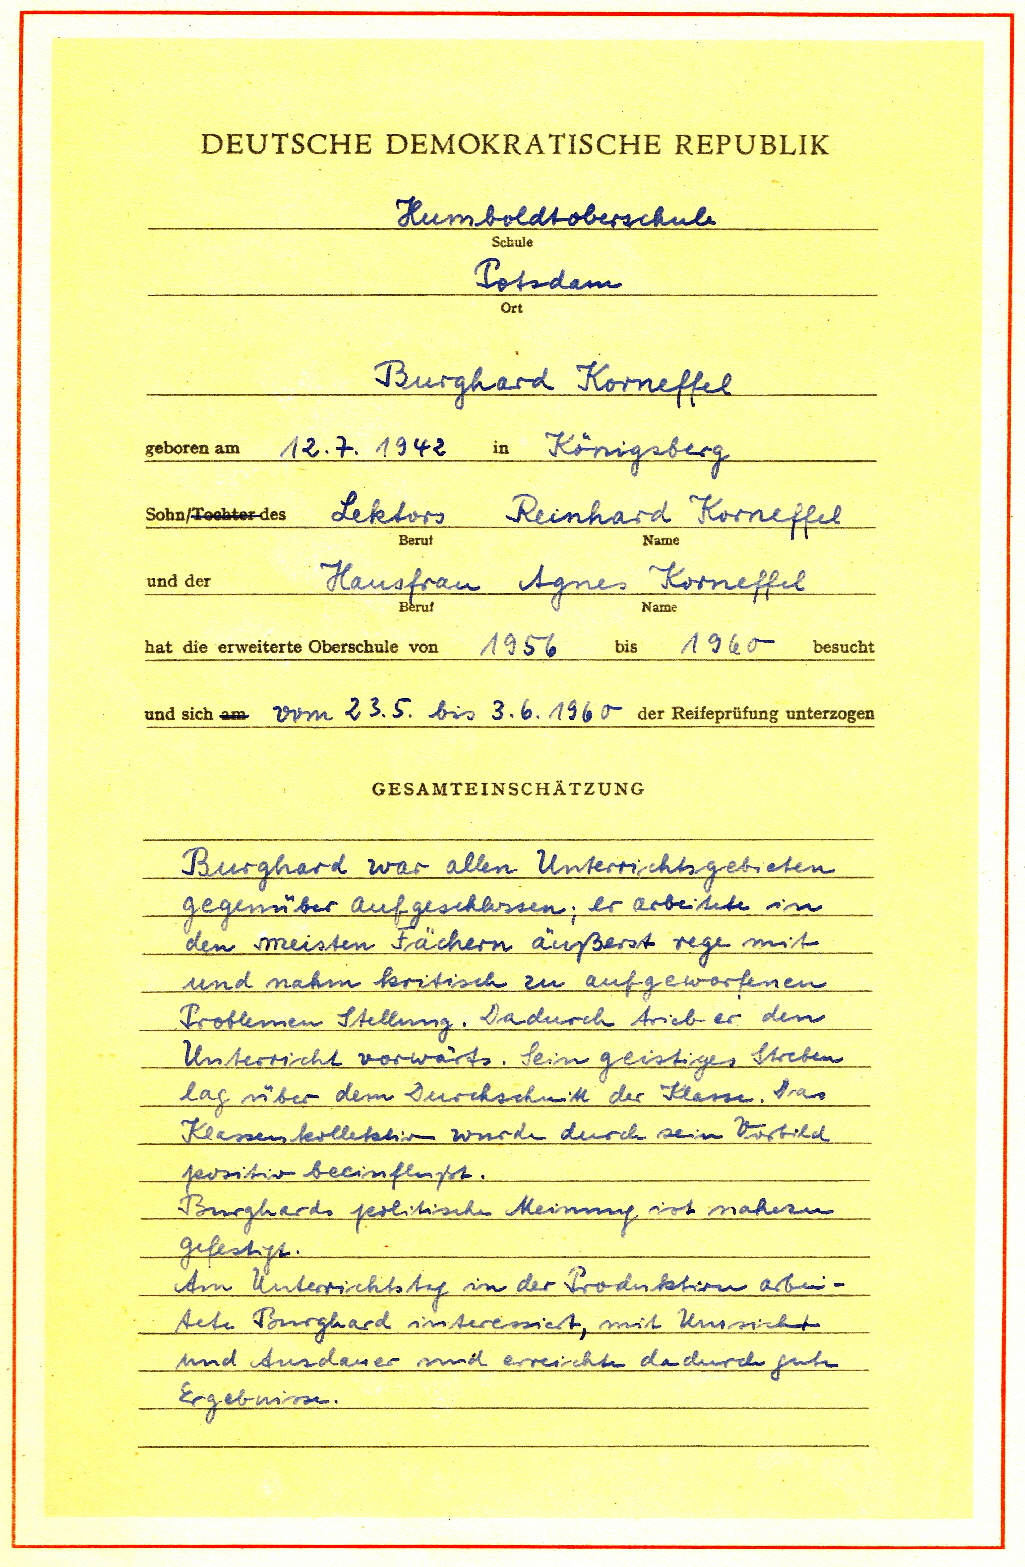 DEUTSCHE DEMOKRATISCHE REPUBLIK
Humboldtoberschule
Schule
Potsdam
Ort
Burghard Korneffel
geboren am 12.7. 1942 in Königsberg
Sohn/Tochter des Lektors Reinhard Korneffel
Beruf Name
und der Hausfrau Agnes Korneffel
Beruf Name
hat die erweiterte Oberschule von 1956 bis 1960 besucht
und sich am vom 23.5. bis 3.6.1960 der Reifeprüfung unterzogen
GESAMTEINSCHÄTZUNG
Burghard war allen Unterrichtsgebieten
gegenüber aufgeschlossen; er arbeitete in
den meisten Fächern äußerst rege mit
und nahm kritisch zu aufgeworfenen
Problemen Stellung. Dadurch trieb er den
Unterricht vorwärts. Sein geistiges Streben
lag über dem Durchschnitt der Klasse. Das
Klassenkollektiv wurde durch sein Vorbild
positiv beeinflußt.
Burghards politische Meinung ist nahezu
gefestigt.
Am Unterrichtstag in der Produktion arbei-
tete Burghard interessiert, mit Umsicht
und Ausdauer und erreichte dadurch gute
Ergebnisse.